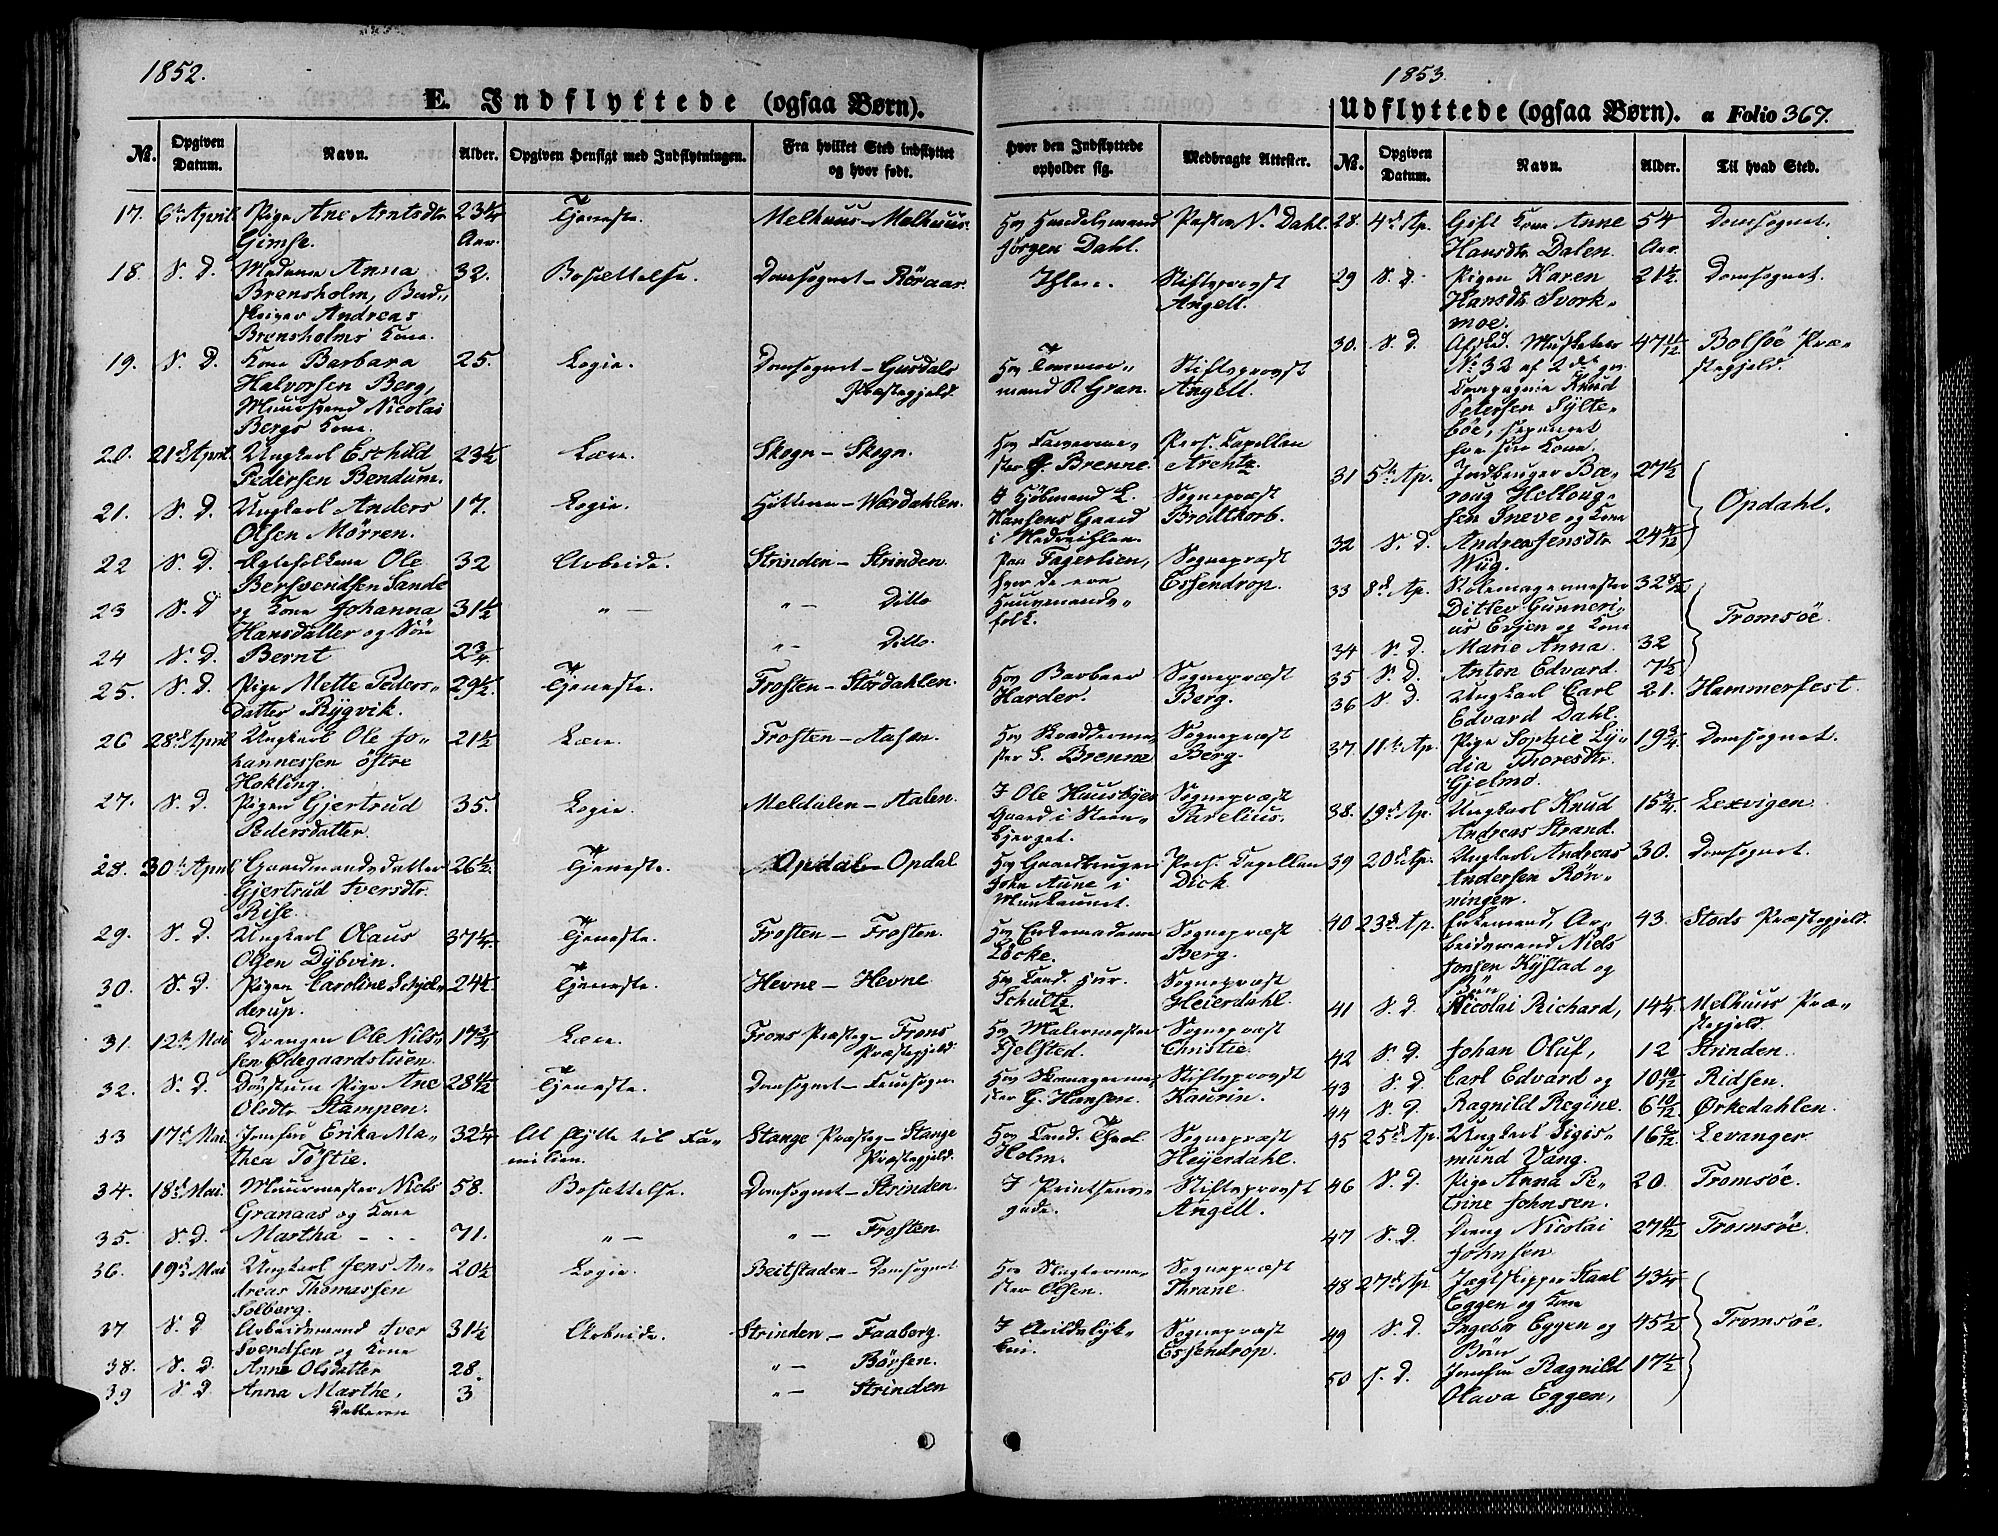 1852.
E. Indflyttede (ogsaa Børn).
No. Opgiven Datum. Navn. Alder. Opgiven Hensigt med Indflytningen. Fra hvilket Sted indflyttet og hvor født. Hvor den Indflyttede opholder sig. Medbragte Attester.
17. 6te April Pige Ane Arntsdtr Gimse. 23 1/4 Aar. Tjeneste. Melhuus – Melhuus. Hos Handelsmand Jørgen Dahl. Pastor N. Dahl.
18. S. D. Madame Anna Brensholm, Bødskriver Andreas Brensholms Kone. 32. Bosættelse. Domsognet – Röraas. Ihlen. Stiftsprovst Angell.
19. S. D. Kone Barbara Halvorsen Berg, Muursvend Nicolai Bergs Kone. 25. Logie. Domsognet – Gusdals Præstegjeld. Hos Tømmermand P. Gran. Stiftsprovst Angell.
20. 21de April. Ungkarl Eskild Pedersen Bendum. 23 1/2 Lære. Skogn – Skogn. Hos Farverme­ster G. Brenne. Pers. Capellan Arentz.
21. S. D. Ungkarl Anders Olsen Mørren. 17. Logie. Hitteren – Wærdahlen. I Kjöbmand L. Hansens Gaard i Nedreihlen. Sognepræst Brodtkorb.
22 S. D. Ægtefolkene Ole Bersvendsen Sande 32 Arbeide. Strinden – Strinden. Paa Fagerlien, hvor de ere Huusmandsfolk. Sognepræst Essendrop.
23 S. D og Kone Johanna Hansdatter og Sön 31 1/2 " — " — Ditto
24 S. D. Bernt 2 3/4 " — Ditto.
25. S. D. Pige Mette Pedersdatter Rygvik. 29 1/2. Tjeneste. Frosten – Stördahlen. Hos Barbeer Harder. Sognepræst Berg.
26 28de April Ungkarl Ole Johannessen østre Hokling. 21 1/2 Lære. Frosten – Aasen. Hos Skræddermester S. Brenne Sognepræst Berg.
27. S. D. Pigen Gjertrud Pedersdatter. 35. Logie. Meldalen – Aalen. I Ole Huusbyes Gaard i Steenbjerget. Sognepræst Parelius.
28. 30te April Gaardmandsdatter Gjertrud Iversdtr. Rise. 26 1/2. Tjeneste. Opdal – Opdal. Hos Gaardbruger John Aune i Munkaunet. Pers. Capellan Dick.
29. S. D. Ungkarl Olaus Olsen Dybvin. 37 1/4. Tjeneste. Frosten – Frosten. Hos Enkemadame Löcke. Sognepræst Berg.
30. S. D. Pigen Caroline Schjelderup. 24 1/2. Tjeneste. Hevne – Hevne Hos Cand. jur. Schultz Sognepræst Heierdahl.
31. 12te Mai Drengen Ole Nilssen Ødegaardstuen. 17 3/4 Lære. Frons Præsteg – Frons Præstegjeld. Hos Malermester Fjelsted. Sognepræst Christie.
32. S. D. Pige Ane Olsdtr Stampen. 28 11/12 Tjeneste. Domsognet – Hos Skomagermester G. Hansen. Stiftsprovst Kaurin.
33 17de Mai Jomfru Erika Mathea Töstie. 32 1/4 At flytte til Familien. Stange Præsteg – Stange Præstegjeld. Hos Cand. Theol Holm. Sognepræst Heyerdahl.
34. 18de Mai. Muurmester Niels Granaas og Kone 58. Bosættelse. Domsognet – Strinden. I Printsensgade. Stiftsprovst Angell.
35. S. D. Martha - - - 71. " — " — Frosten
36. 19de Mai Ungkarl Jens Andreas Thomassen Solberg. 20 1/2 Logie. Beitstaden – Domsognet Hos Slagtermester Olsen. Sognepræst Thrane.
37 S. D Arbeidsmand Iver Svendsen og Kone 31 1/2 Arbeide. Strinden – Faaborg. I Sognepræst Essendrop.
38. S. D. Anne Olsdatter 28. " — Börsen.
39 S. D Anna Marthe, Datteren 3 " — Strinden
1853.
Udflyttede (ogsaa Børn). a Folio 367.
No. Opgiven Datum. Navn. Alder. Til hvad Sted.
28. 4de Ap. Gift Kone Anne Hansdtr Dalen. 54 Aar. Domsognet.
29 S. D. Pigen Karen Hansdtr Svorkmoe. 21 1/2 Domsognet.
30. S. D. Afsked. Musketeer No 32 af 2det gv. Compagnie Knud Petersen Syltebøe, separeret fra sin Kone. 47 11/12 Bolsöe Præstegjeld.
31 5te Ap. Indbruger Baroug Hellougsen Sneve og Kone 27 1/2 Opdahl.
32 S. D. Andrea Jensdtr Wüg. 24 4/12
33 8de Ap. Stolemagermester Ditlev Gunnerius Evjen og Kone 32 8/12 Tromsöe.
34 S. D. Marie Anna. 32
35 S. D. Anton Edvard. 7 1/2
36 S. D. Ungkarl Carl Edvard Dahl. 21. Hammerfest.
37. 11te Ap. Pige Sophie Lydia Thoresdtr. Gjelmo. 19 3/4. Domsognet.
38. 19de Ap. Ungkarl Knud Andreas Strand. 15 3/4. Lexvigen.
39 20de Ap. Ungkarl Andreas Andersen Rönningen. 30. Domsognet.
40 23de Ap. Enkemand, Arbeidsmand Niels Jonsen Kystad og Börn 43. Stods Præstegjeld.
41 S. D. Nicolai Richard, 14 1/4 Melhuus Præstegjeld.
42 S. D. Johan Oluf, 12 Strinden.
43 S. D. Carl Edvard og 10 10/12 Ridsen.
44 S. D. Ragnild Regine. 6 10/12 Ørkedahlen.
45 25de Ap. Ungkarl Sigismund Vang. 16 8/12 Levanger.
46 S. D. Pige Anna Petrine Johnsen. 20. Tromsöe.
47 S. D. Dreng Nicolai Johnsen 27 11/12 Tromsöe.
48 27de Ap. Jægtskipper Staal Eggen og Kone 43 1/4 Tromsöe.
49 S. D. Ingebor Eggen og Börn 45 1/2
50 S. D. Jomfru Ragnild Olava Eggen, 17 1/2